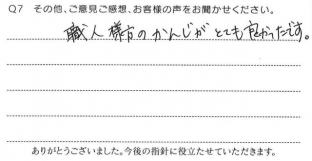 Q7 その他、ご意見ご感想、お客様の声をお聞かせください。
職人様方のかんじがとても良かったです。
ありがとうございました。今後の指針に役立たせていただきます。